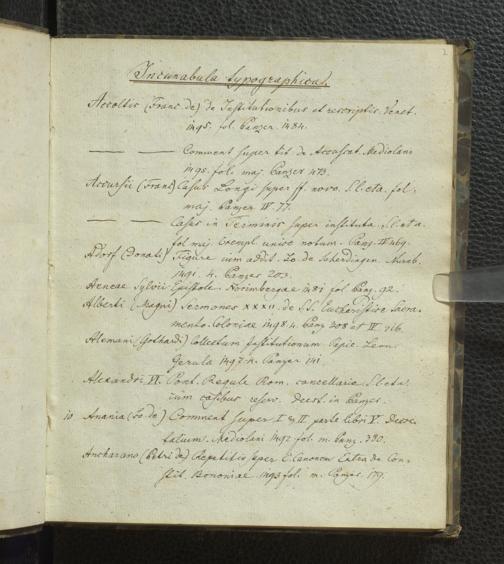 Incunabula typographica.
Accoltis (Franc. de) de Institutionibus et rescriptis. Venet.
1495. fol. Panzer. 1484.
— — Comment super tit. de Accusat. Mediolani
1495. fol. maj. Panzer 473.
Accursii (Franc) Casus Longi super ff novo. S. l. et a. fol.
maj. Panzer IV. 77.
— — Casus in Terminis super instituta. S. l. et a.
fol maj. Exempl unice notum. Panz. IV 469.
(Donati) Figure cum addit. Nurnb.
1491. 4. Panzer 203.
Aeneae Sylvii Epistole. Norimbergae 1481 fol Panz. 92.
Alberti (Magni) Sermones XXXII. de S. S. Eucharistiae Sacra-
mento. Coloniae 1498 4. Panz 208 et IV
Alemani (Gothardi) Collectum Institutionum. Papie. Leon.
Gerula 1497. Panzer 141.
Alexandri VI. Pont. Regule Rom. cancellarie. S. l. et a.
cum casibus reserv. Deest in Panzer.
10 Anania (Jo de) Comment super I & II parte libri V. Decre-
talium. Mediolani 1492 fol. m. Panz. 380.
Ancharano (Petri de) Repetitio super C. Canonum Extra de Con-
stit. Bononiae. 1493 fol. m. Panzer. 179.